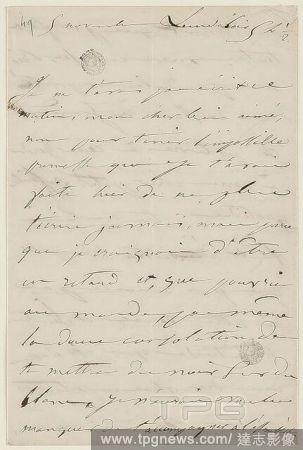 49 5 novembre Lundi soir 5h ½
Je ne t'avais pas écrit ce
matin, mon cher bien aimé,
non pour tenir l'impossible
promesse que je t'avais
faite hier de ne plus
t'écrire jamais, mais parce
que je craignais d'être
en retard et, que pour rien
au monde, pas même
la douce consolation de
te mettre du noir sur du
blanc, je n'aurais voulu
manquer de t'accompagner
TPG
www.tpgnews.com | 達志影像